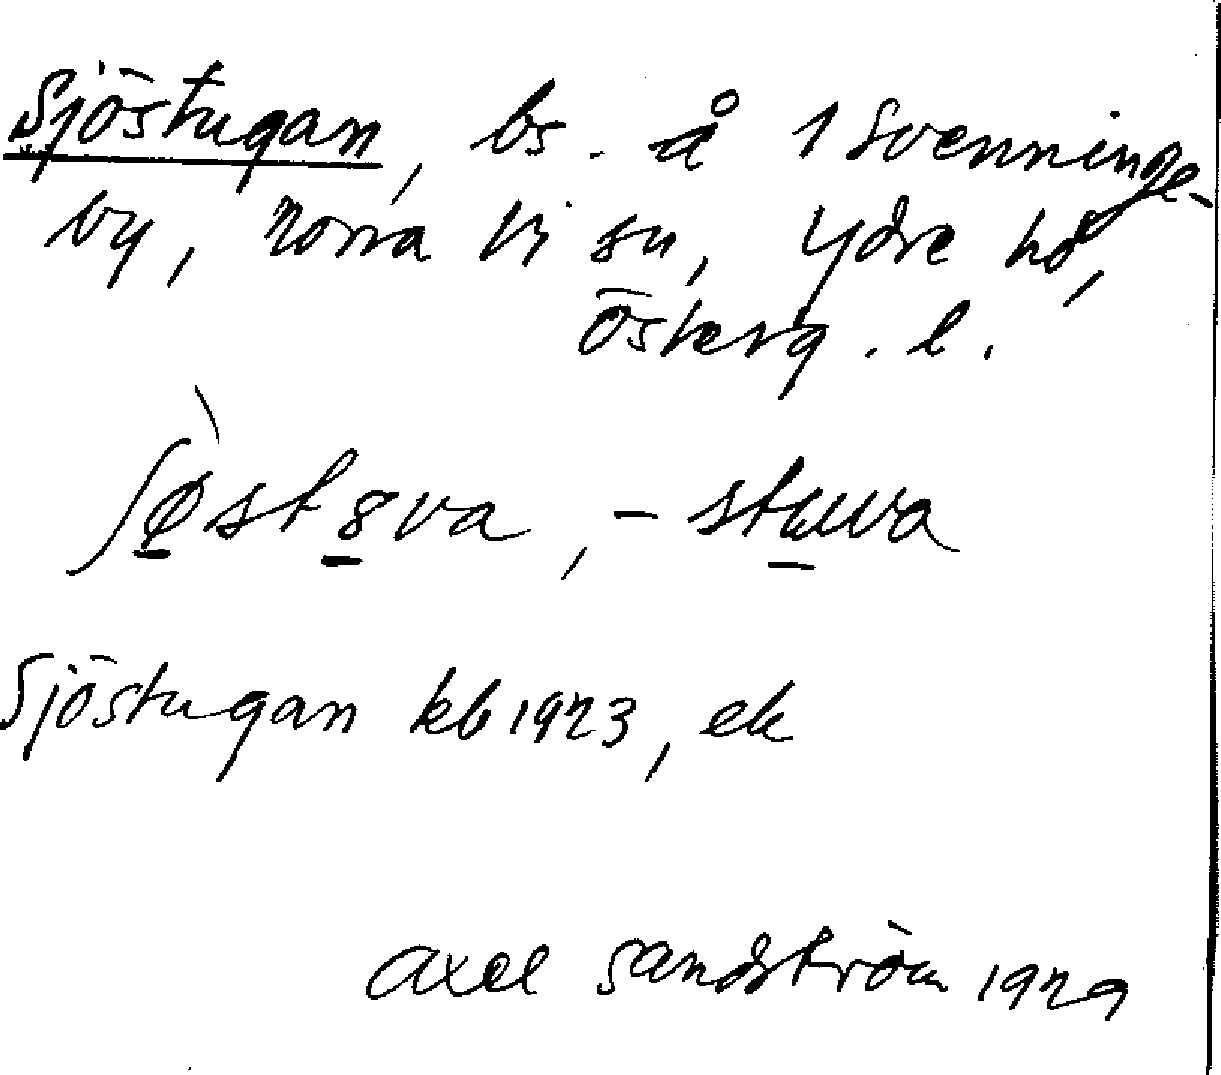 Sjöstugan, bs. å 1 Svenninge-
by, Norra Vi sn, Ydre hd,
Österg. l.
ʃøstȣva, -stuvva
Sjöstugan kb 1923, ek
Axel Sandström 1929